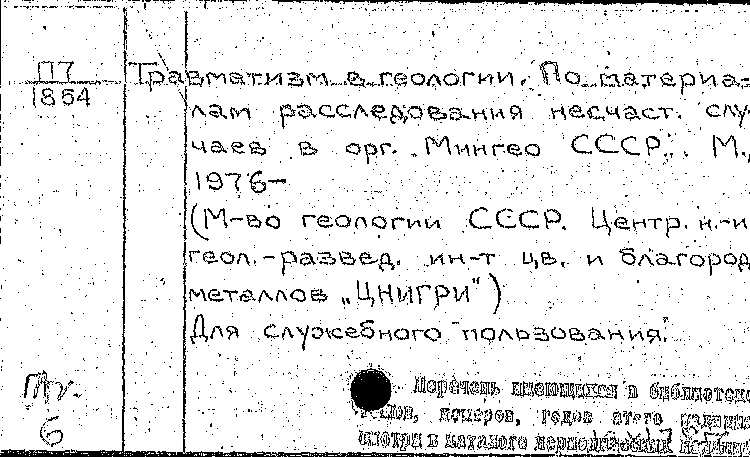 П7
1864
Травматизм в геологии. По материа-
лам расследования несчаст. слу-
чаев в орг. Мингео СССР. М.,
1976-
(М-во геологии СССР. Центр. н.-и
геол.-развед. ин-т цв. и благород
металлов „ЦНИГРИ")
Для служебного пользования.
6
Перечень имеющихся в библиотеке
номеров, годов этого издания
смотри в каталоге периодических изданий